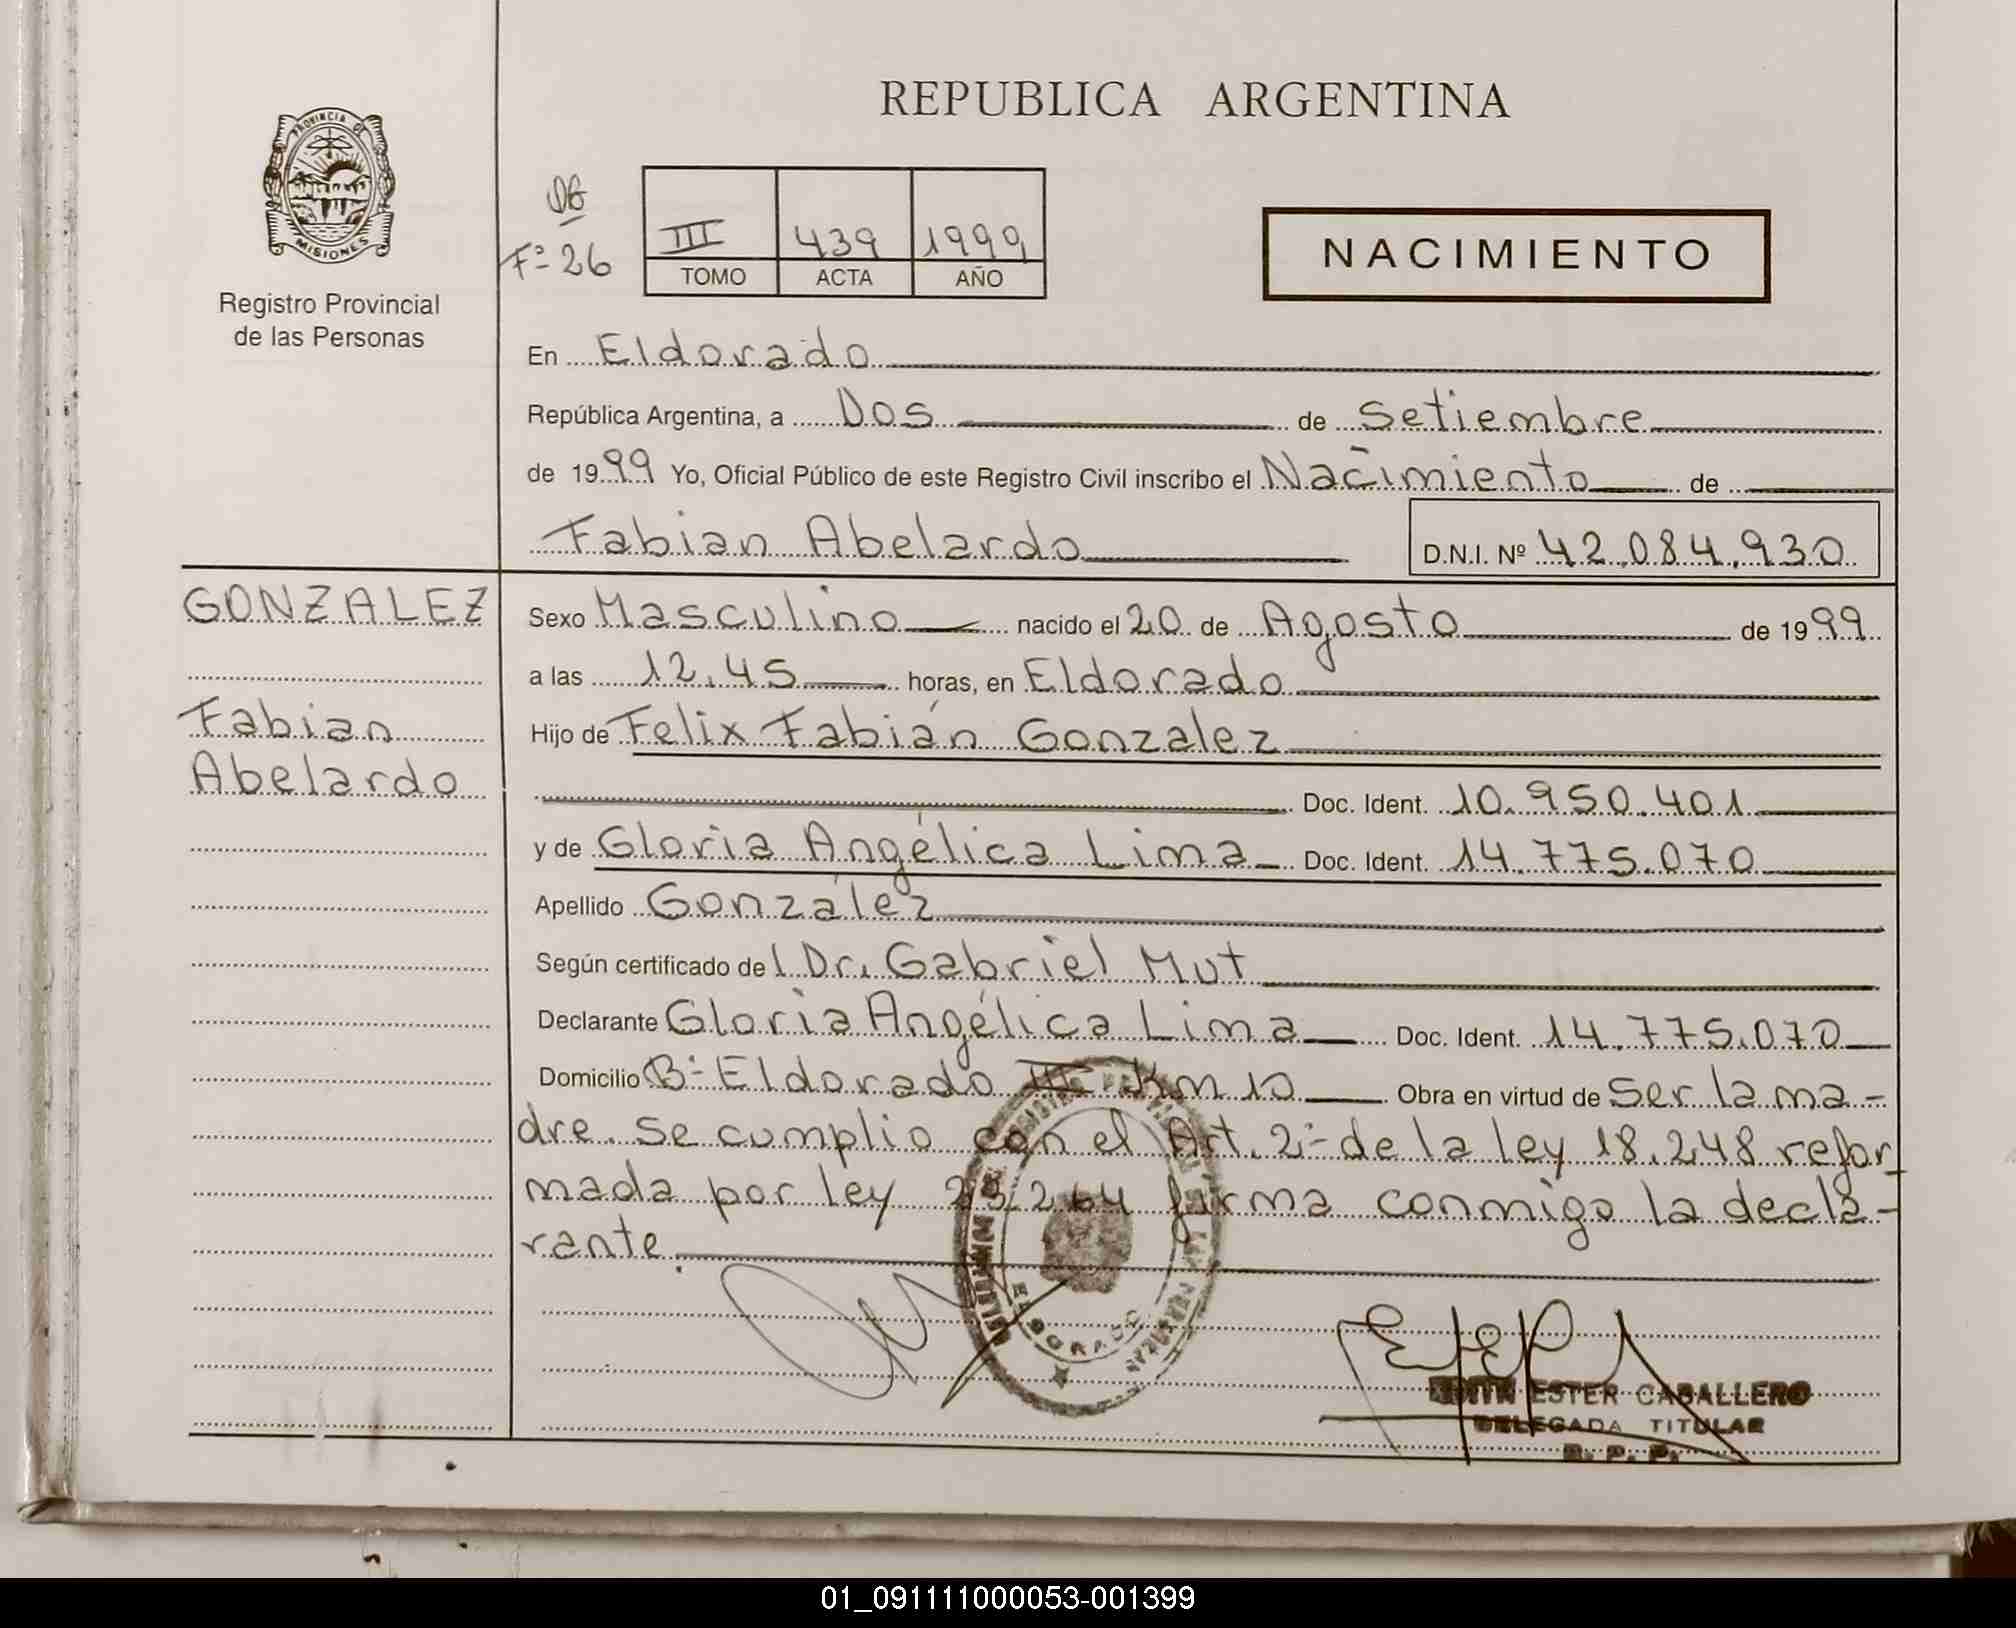 REPUBLICA ARGENTINA
PROVINCIA DE
MISIONES
Registro Provincial
de las Personas
Fº 26
III 439 1999
TOMO ACTA AÑO
NACIMIENTO
En Eldorado
República Argentina, a Dos de Setiembre
de 1999 Yo, Oficial Público de este Registro Civil inscribo el Nacimiento de
Fabian Abelardo D.N.I. Nº 42.084.930
GONZALEZ
Fabian
Abelardo
Sexo Masculino nacido el 20 de Agosto de 1999
a las 12.45 horas, en Eldorado
Hijo de Felix Fabián Gonzalez
Doc. Ident. 10.950.401
y de Gloria Angélica Lima Doc. Ident. 14.775.070
Apellido González
Según certificado del Dr. Gabriel Mut
Declarante Gloria Angélica Lima Doc. Ident. 14.775.070
Domicilio Bº Eldorado III Km 10 Obra en virtud de Ser la ma-
dre. Se cumplio con el Art. 2º de la ley 18.248 refor-
mada por ley 23.264 firma conmigo la decla-
rante.
ELDORADO
EDITH ESTER CABALLERO
DELEGADA TITULAR
R. P. P.
01_091111000053-001399